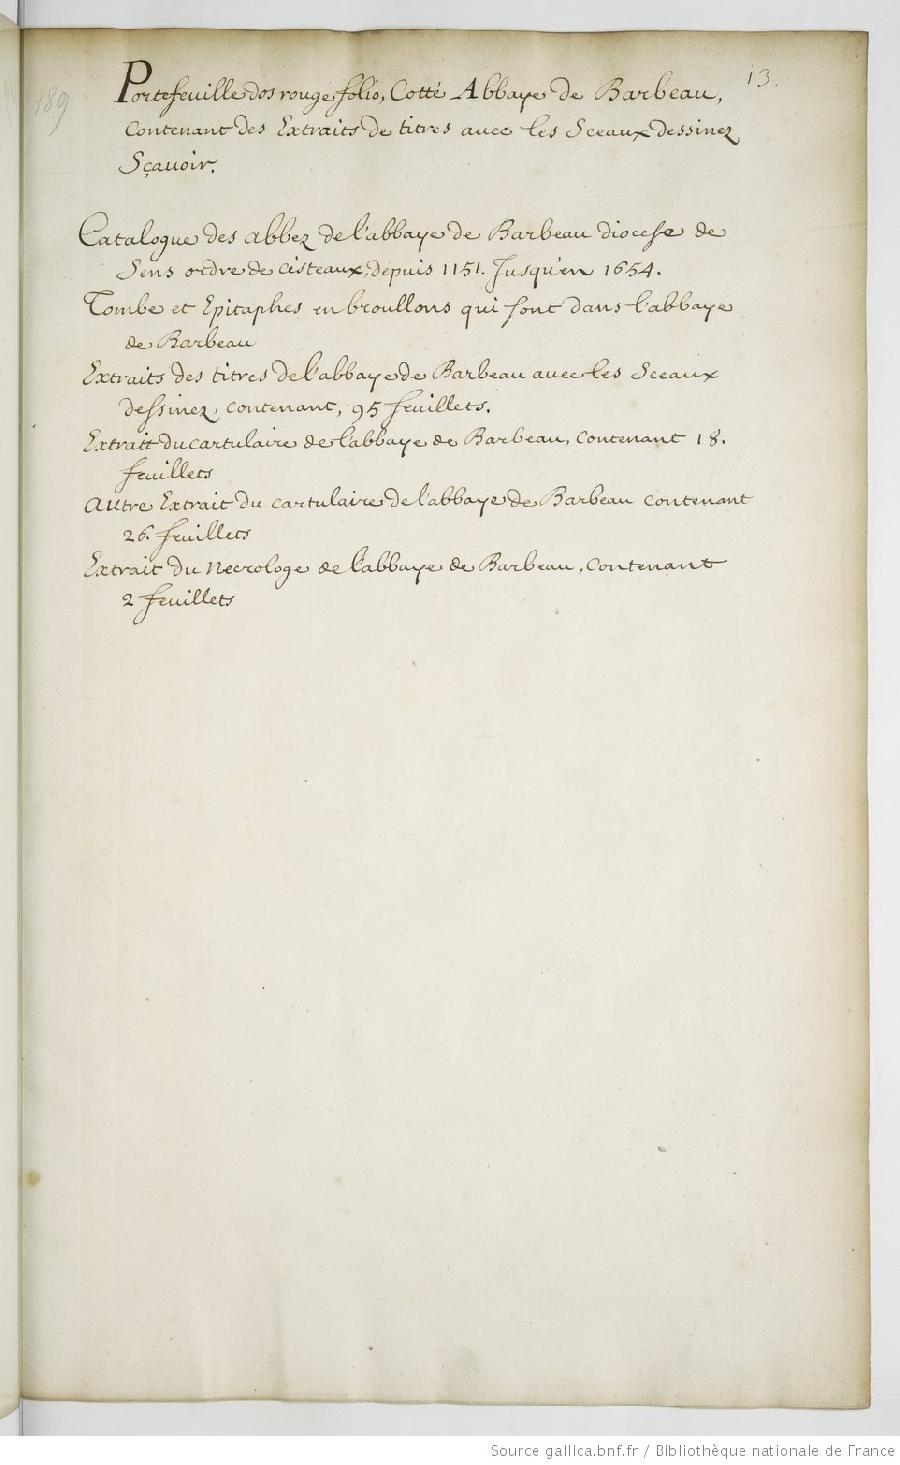 13.
189
Portefeuille dos rouge folio, Cotté Abbaye de Barbeau,
Contenant des Extraits de titres avec les Sceaux dessinez
Sçavoir.
Catalogue des abbez de l'abbaye de Barbeau diocese de
Sens ordre de Cisteaux, depuis 1151. Jusqu'en 1654.
Tombe et Epitaphes en broullons qui sont dans l'abbaye
de Barbeau
Extraits des titres de l'abbaye de Barbeau avec les Sceaux
dessinez, contenant, 95 feuillets.
Extrait du cartulaire de l'abbaye de Barbeau, contenant 18.
feuillets
autre Extrait du cartulaire de l'abbaye de Barbeau contenant
26. feuillets
Extrait du Necrologe de l'abbaye de Barbeau, contenant
2 feuillets
Source gallica.bnf.fr / Bibliothèque nationale de France